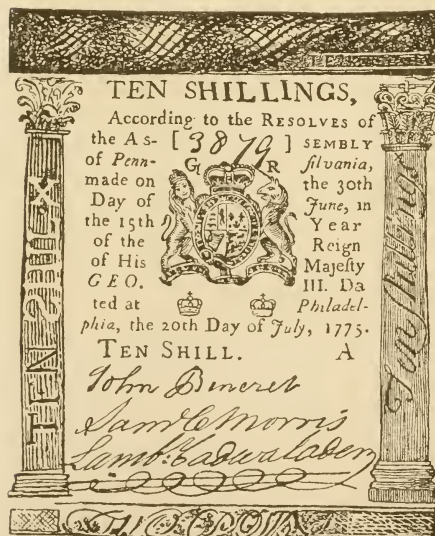 TEN SHILLINGS,
According to the RESOLVES of
the As- [3879] SEMBLY
of Penn- G R ſilvania,
made on the 30th
Day of June, in
the 15th Year
of the Reign
of His Majeſty
GEO. III. Da
ted at Philadel-
phia, the 20th Day of July, 1775.
TEN SHILL. A
John
Saml C Morris
Ten ſhillings